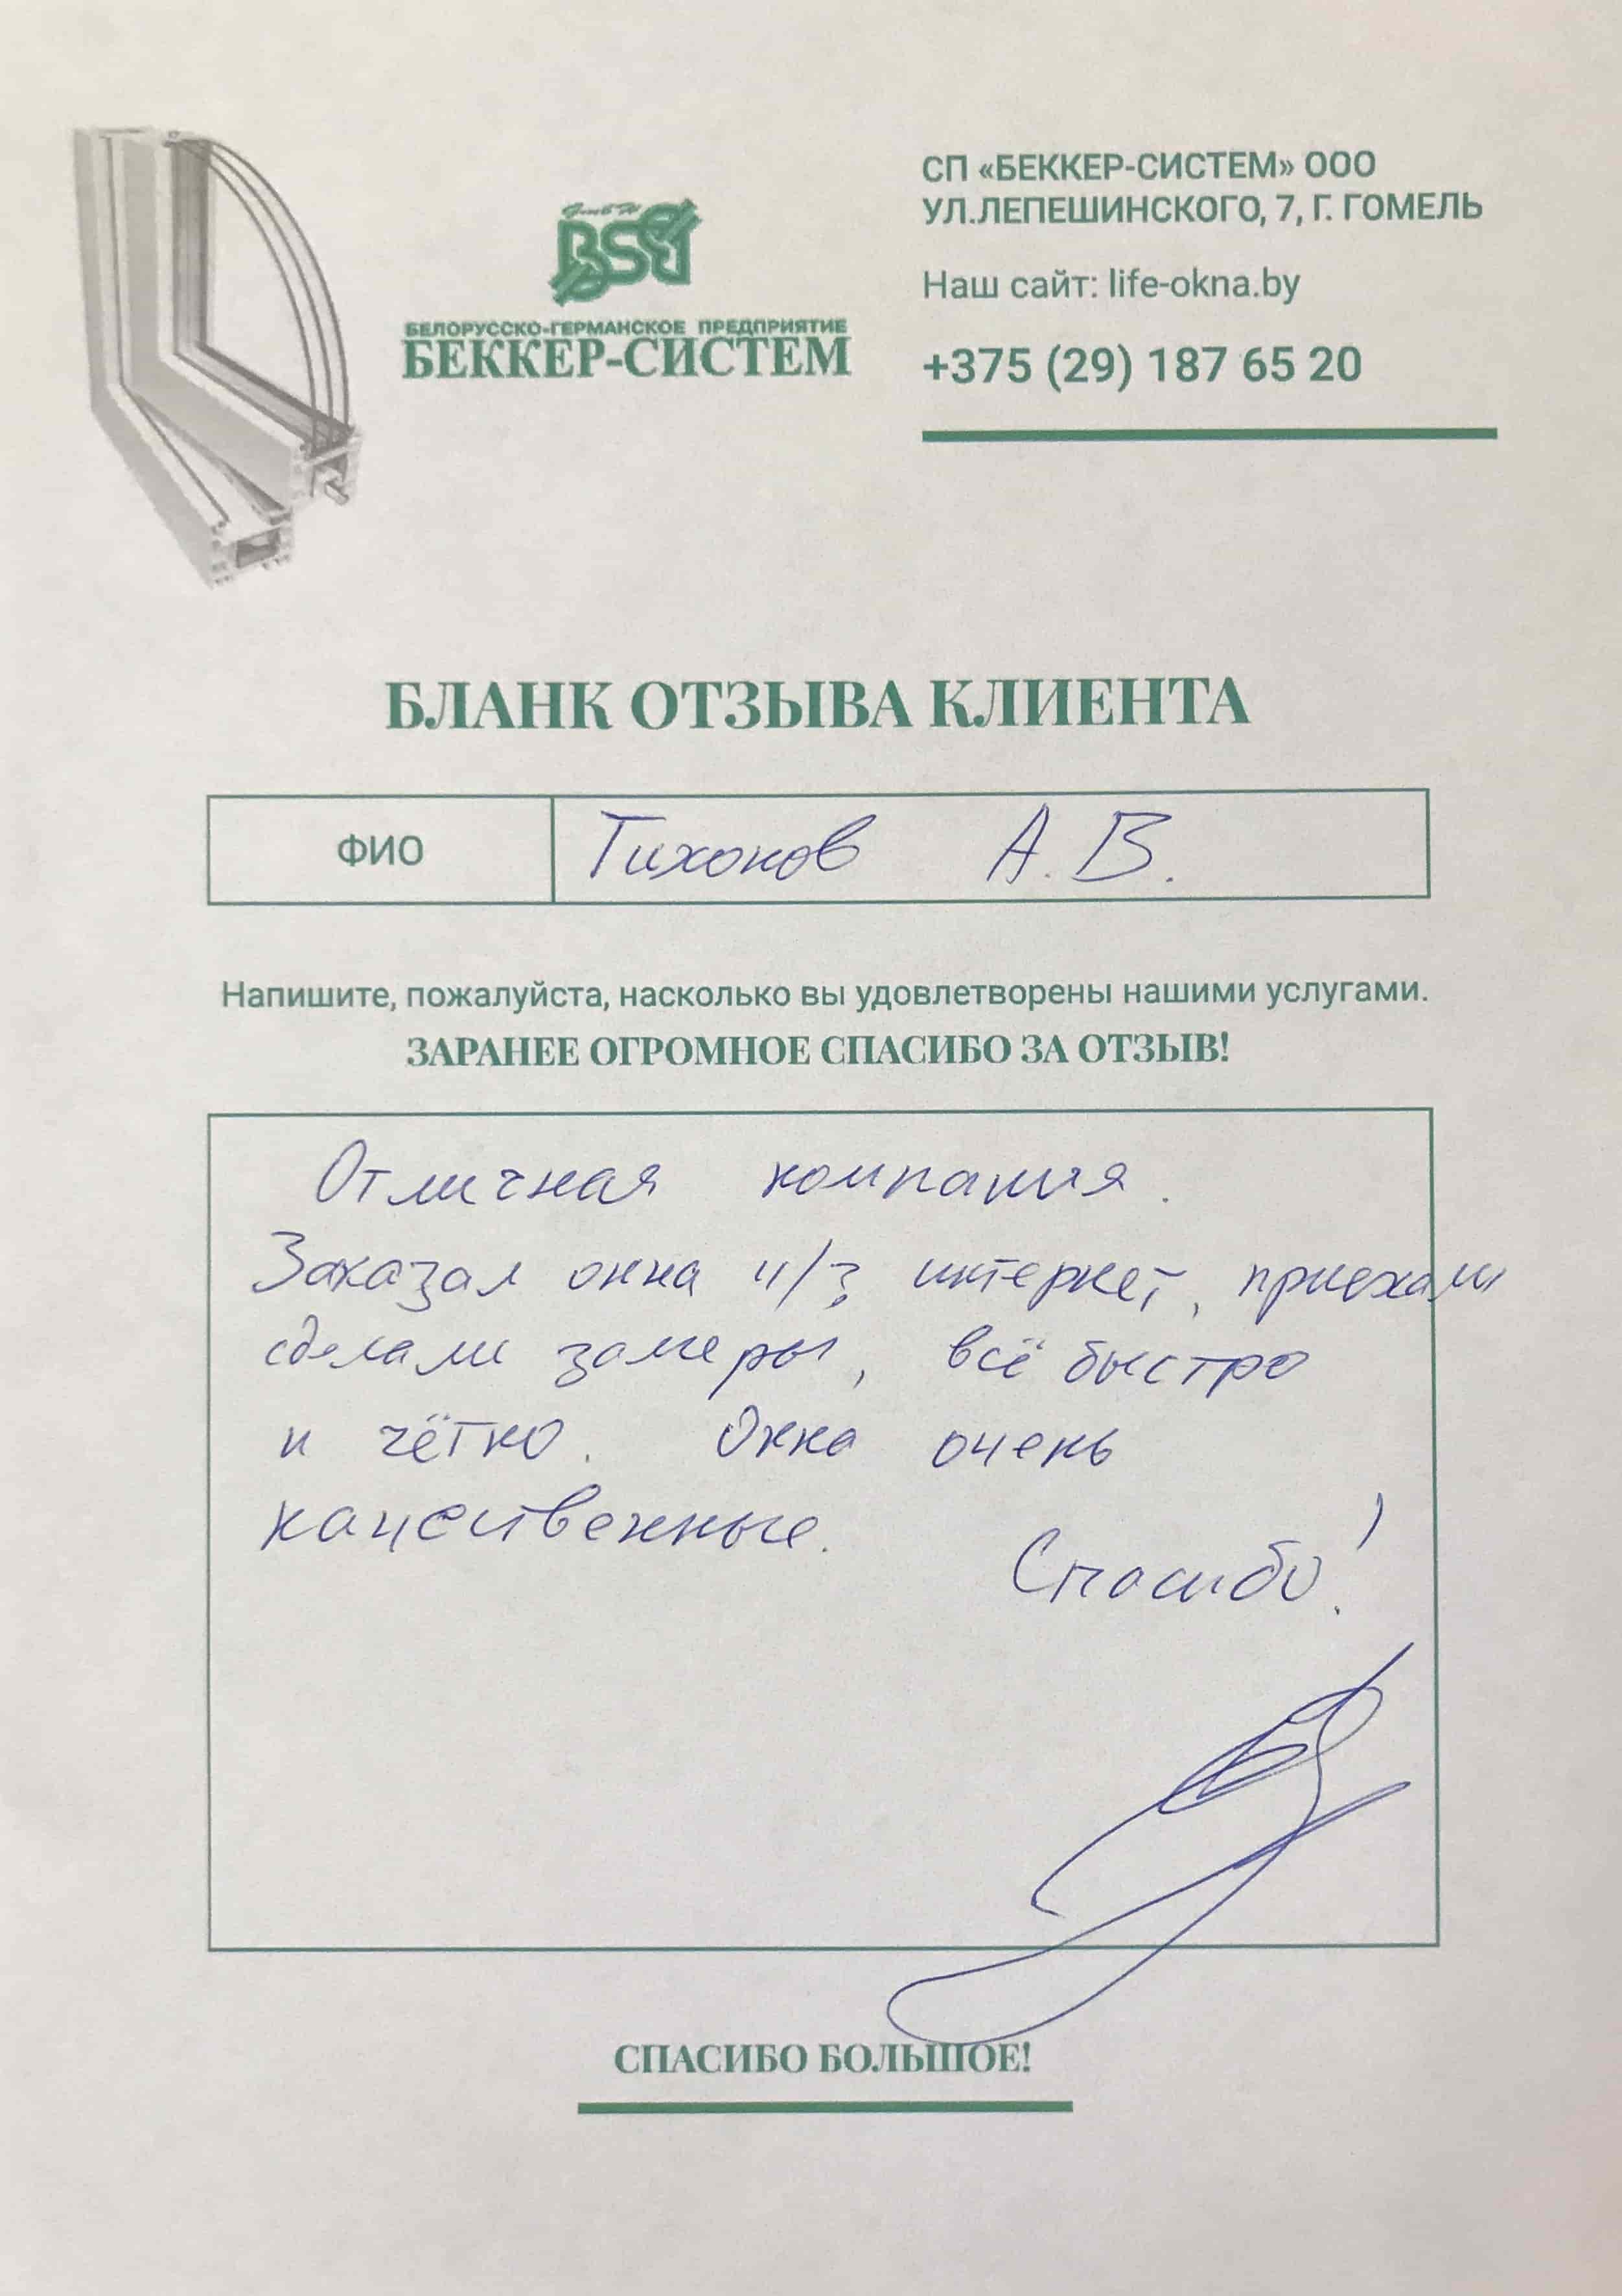 СП «БЕККЕР-СИСТЕМ» ООО
УЛ.ЛЕПЕШИНСКОГО, 7, Г. ГОМЕЛЬ
Наш сайт: life-okna.by
+375 (29) 187 65 20
GmbH
BSG
БЕЛОРУССКО-ГЕРМАНСКОЕ ПРЕДПРИЯТИЕ
БЕККЕР-СИСТЕМ
БЛАНК ОТЗЫВА КЛИЕНТА
ФИО Тихонов А. В.
Напишите, пожалуйста, насколько вы удовлетворены нашими услугами.
ЗАРАНЕЕ ОГРОМНОЕ СПАСИБО ЗА ОТЗЫВ!
Отличная компания.
Заказал окна ч/з интернет, приехали
сделали замеры, всё быстро
и чётко. Окна очень
качественные.
Спасибо!
СПАСИБО БОЛЬШОЕ!